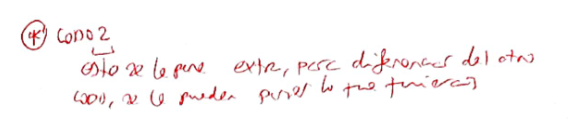 (*) CODO 2
esto se le pone extra, para diferenciar del otro
codo, se le pueden poner lo que quieras